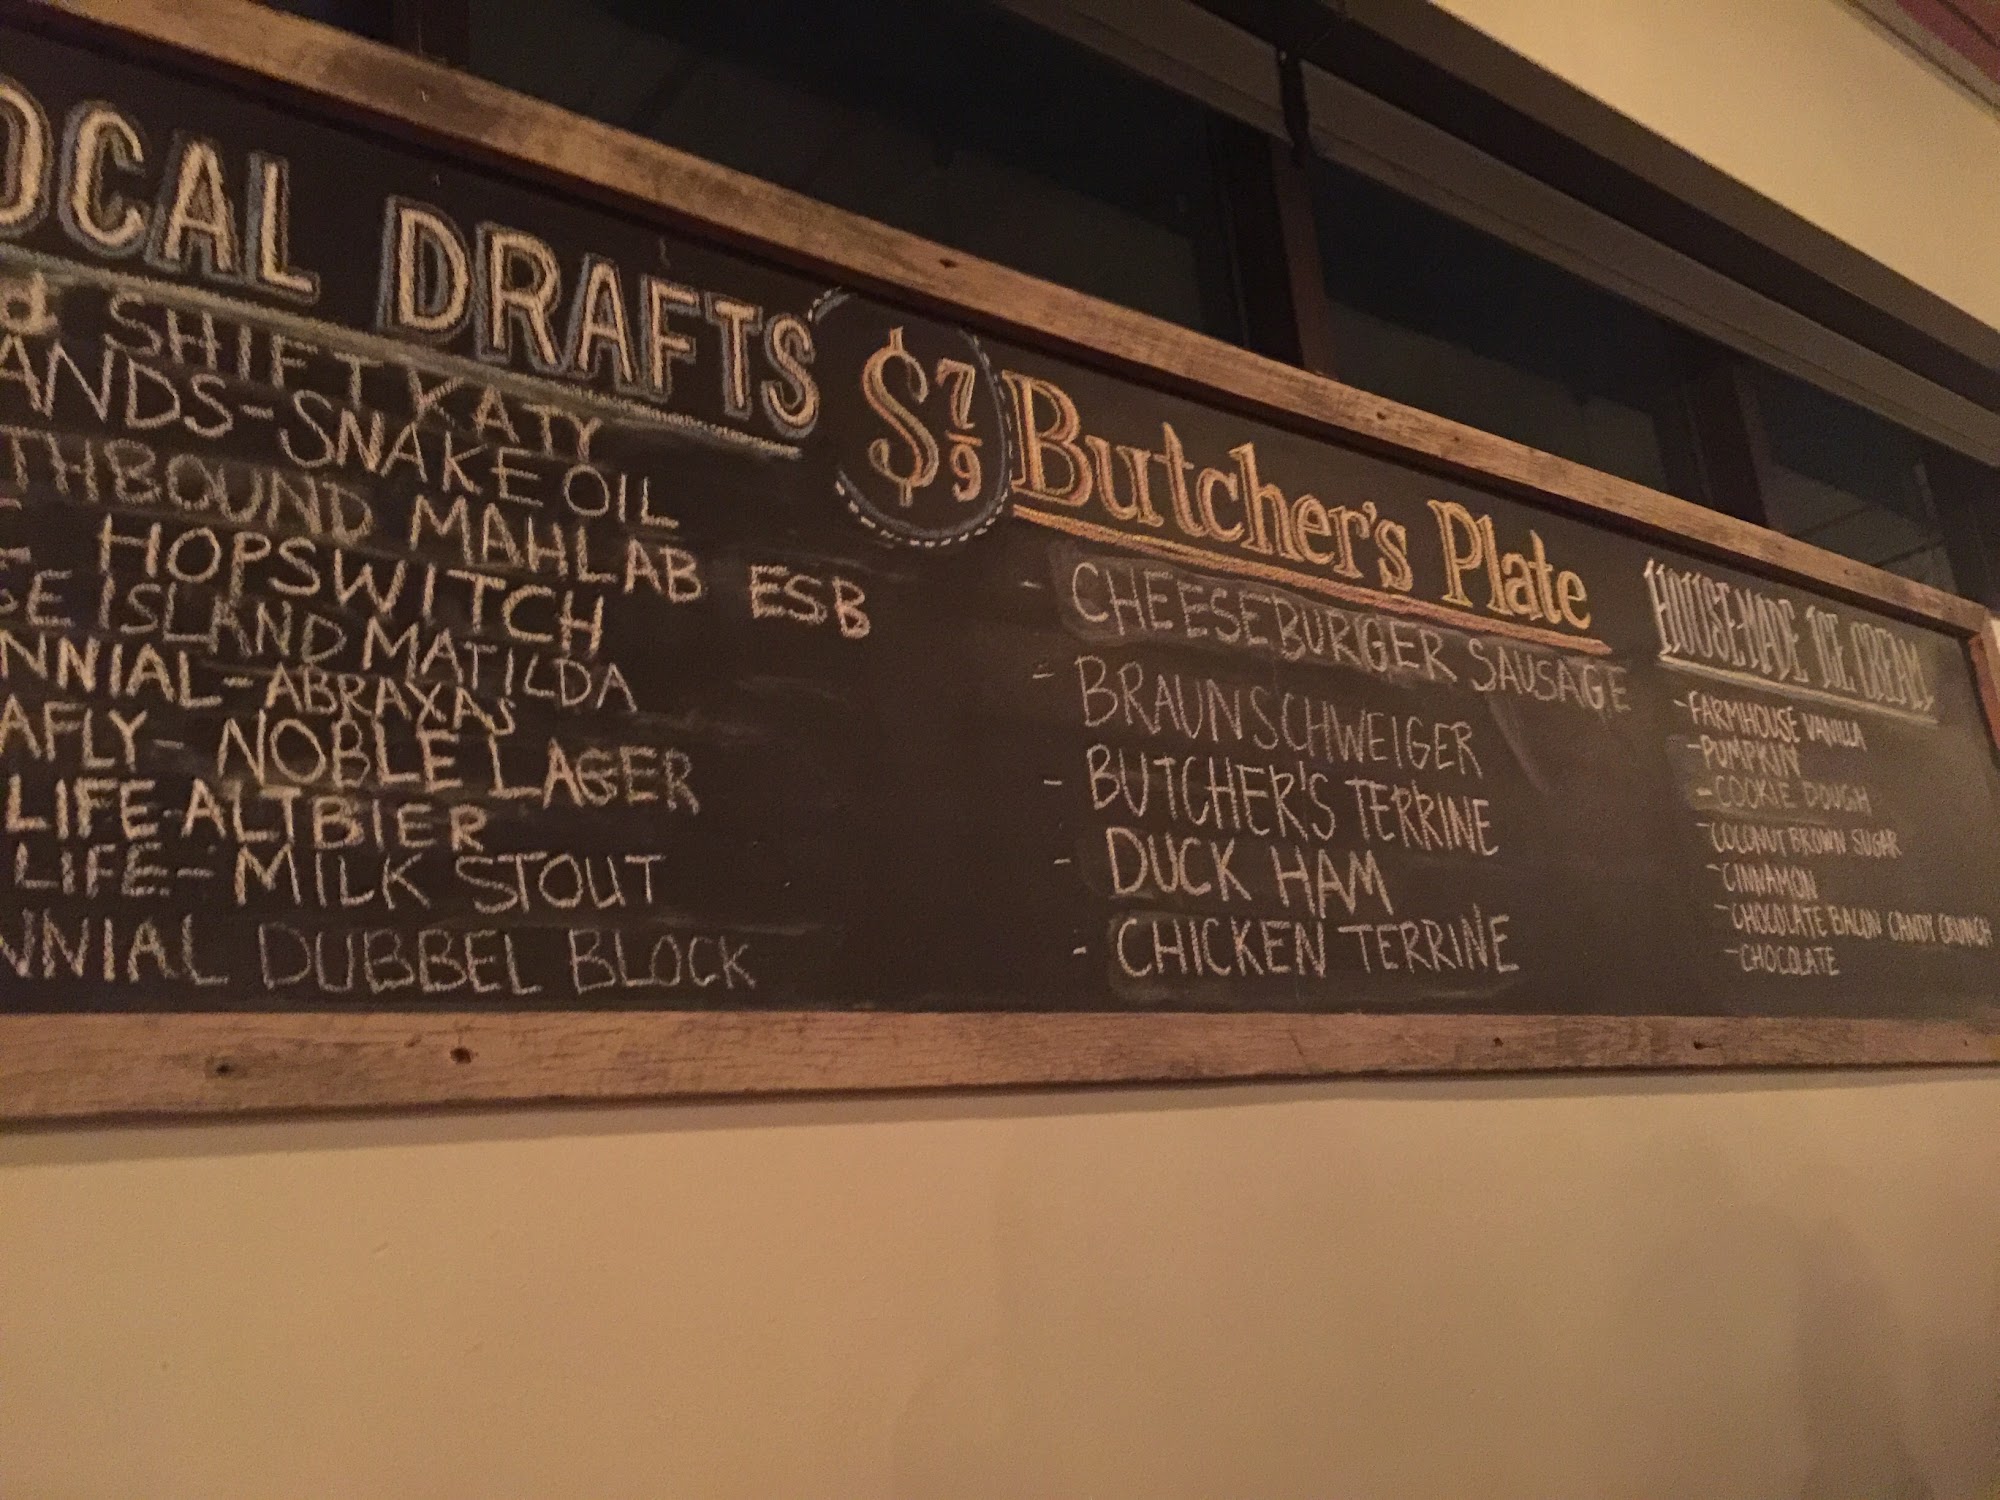 OCAL DRAFTS
d SHIFT XATY
ANDS-SNAKE OIL
THBOUND MAHLAB ESB
- HOPSWITCH
GE ISLAND MATILDA
NNIAL-ABRAXAS
AFLY- NOBLE LAGER
LIFE-ALTBIER
LIFE- MILK STOUT
NNIAL DUBBEL BLOCK
$7/9 Butcher's Plate
- CHEESEBURGER SAUSAGE
- BRAUNSCHWEIGER
- BUTCHER'S TERRINE
- DUCK HAM
- CHICKEN TERRINE
HOUSE-MADE ICE CREAM
-FARMHOUSE VANILLA
-PUMPKIN
-COOKIE DOUGH
-COCONUT BROWN SUGAR
-CINNAMON
-CHOCOLATE BACON CANDY CRUNCH
-CHOCOLATE